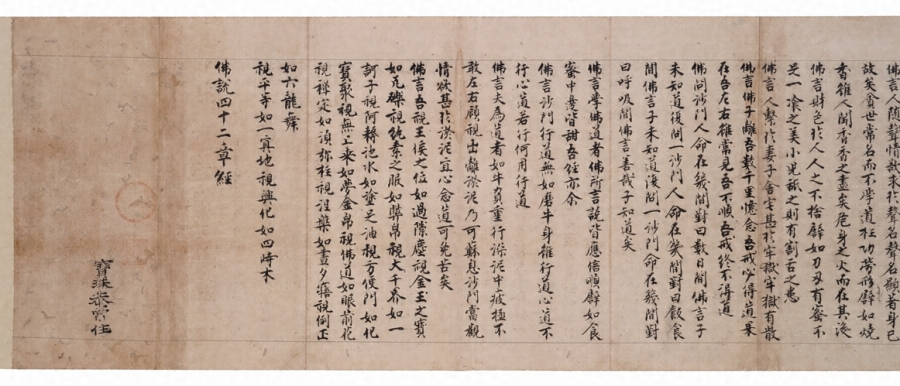 佛言人隨聲情欲求於聲名聲名顯著身已
故矣貪世常名而不學道枉功勞形譬如燒
香雖人聞香香之盡矣危身之火而在其後
佛言財色於人人之不捨譬如刀刃有蜜不
足一飡之美小兒舐之則有割舌之患
佛言人繫於妻子舍宅甚於牢獄牢獄有散
佛言佛子離吾數千里憶念吾戒必得道果
在吾左右雖常見吾不順吾戒終不得道
佛問沙門人命在幾間對曰數日間佛言子
未知道復問一沙門人命在幾間對曰飯食
間佛言子未知道復問一沙門命在幾間對
曰呼吸間佛言善哉子知道矣
佛言學佛道者佛所言說皆應信順譬如食
蜜中邊皆甜吾經亦尒
佛言沙門行道無如磨牛身雖行道心道不
行心道若行何用行道
佛言夫為道者如牛負重行深泥中疲極不
敢左右顧視出離淤泥乃可蘇息沙門當觀
情欲甚於淤泥直心念道可免苦矣
佛言吾視王侯之位如過隙塵視金玉之寶
如瓦礫視紈素之服如弊帛視大千界如一
訶子視阿耨池水如塗足油視方便門如化
寶聚視無上乘如夢金帛視佛道如眼前花
視禪定如須弥柱視涅槃如晝夕寤視倒正
如六龍舞
視平等如一真地視興化如四時木
佛說四十二章經
常住